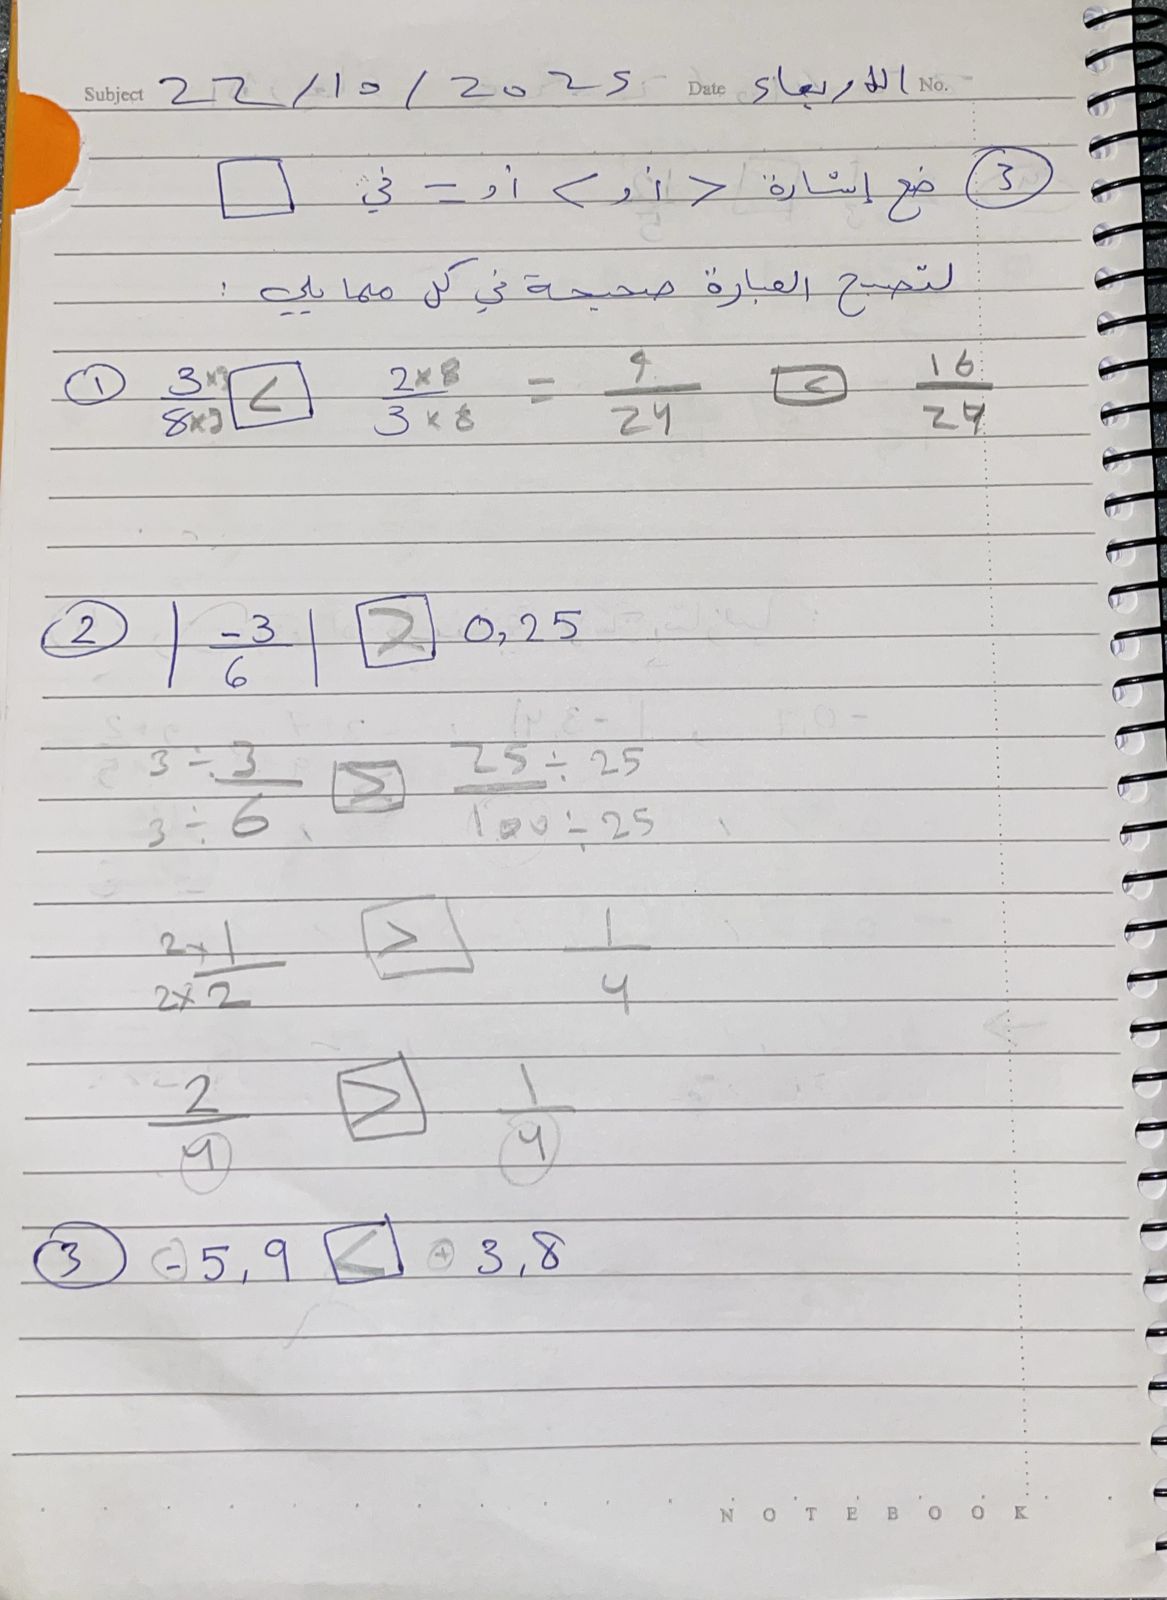 Subject 22/10/2025 Date الاربعاء No.
③ ضع إشارة > أو < أو = في □
لتصبح العبارة صحيحة في كل مما يلي :
① 3×3/8×3 < 2×8/3×8 = 9/24 < 16/24
② |-3/6| > 0,25
3÷3/3÷6 > 25÷25/100÷25
2×1/2×2 > 1/4
2/4 > 1/4
③ -5,9 < + 3,8
NOTEBOOK